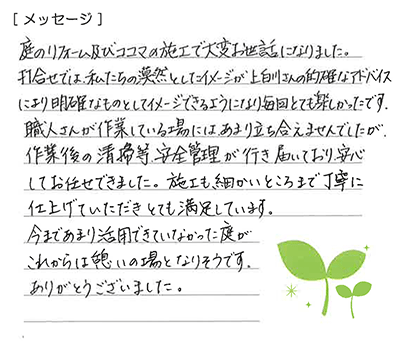 [ メッセージ ]
庭のリフォーム及びココマの施工で大変お世話になりました。
打合せでは、私たちの漠然としたイメージが上白川さんの的確なアドバイス
により明確なものとしてイメージできるようになり毎回とても楽しかったです。
職人さんが作業している場にはあまり立ち会えませんでしたが、
作業後の清掃等、安全管理が行き届いており、安心
してお任せできました。施工も、細かいところまで丁寧に
仕上げていただきとても満足しています。
今まであまり活用できていなかった庭が
これからは憩いの場となりそうです。
ありがとうございました。